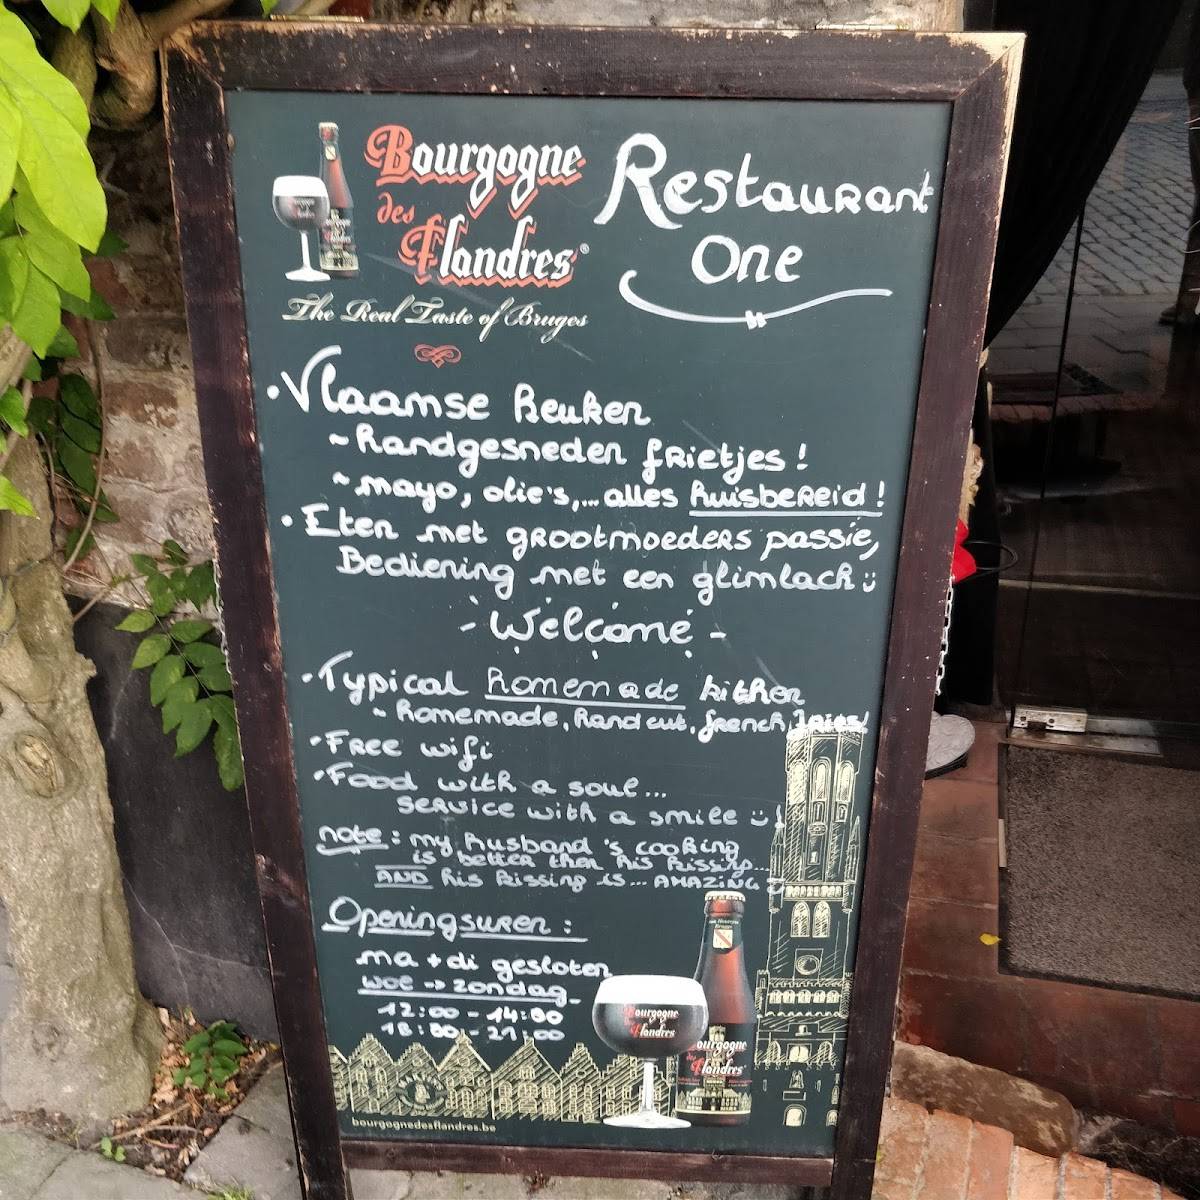 Bourgogne
des
Flandres®
The Real Taste of Bruges
Restaurant
One
• Vlaamse keuken
~ handgesneden frietjes!
~ mayo, olie's,... alles huisbereid!
• Eten met grootmoeders passie,
Bediening met een glimlach
- Welcome -
• Typical homemade kitchen
~ homemade, hand cut, french fries!
• Free wifi
• Food with a soul...
service with a smile !
note: my husband's cooking
is better then his kissing...
AND his kissing is... AMAZING
Openingsuren:
ma + di gesloten
woe -> zondag
12:00 - 14:00
18:00 - 21:00
Bourgogne
des
Flandres
Bourgogne
des
Flandres
bourgognedesflandres.be